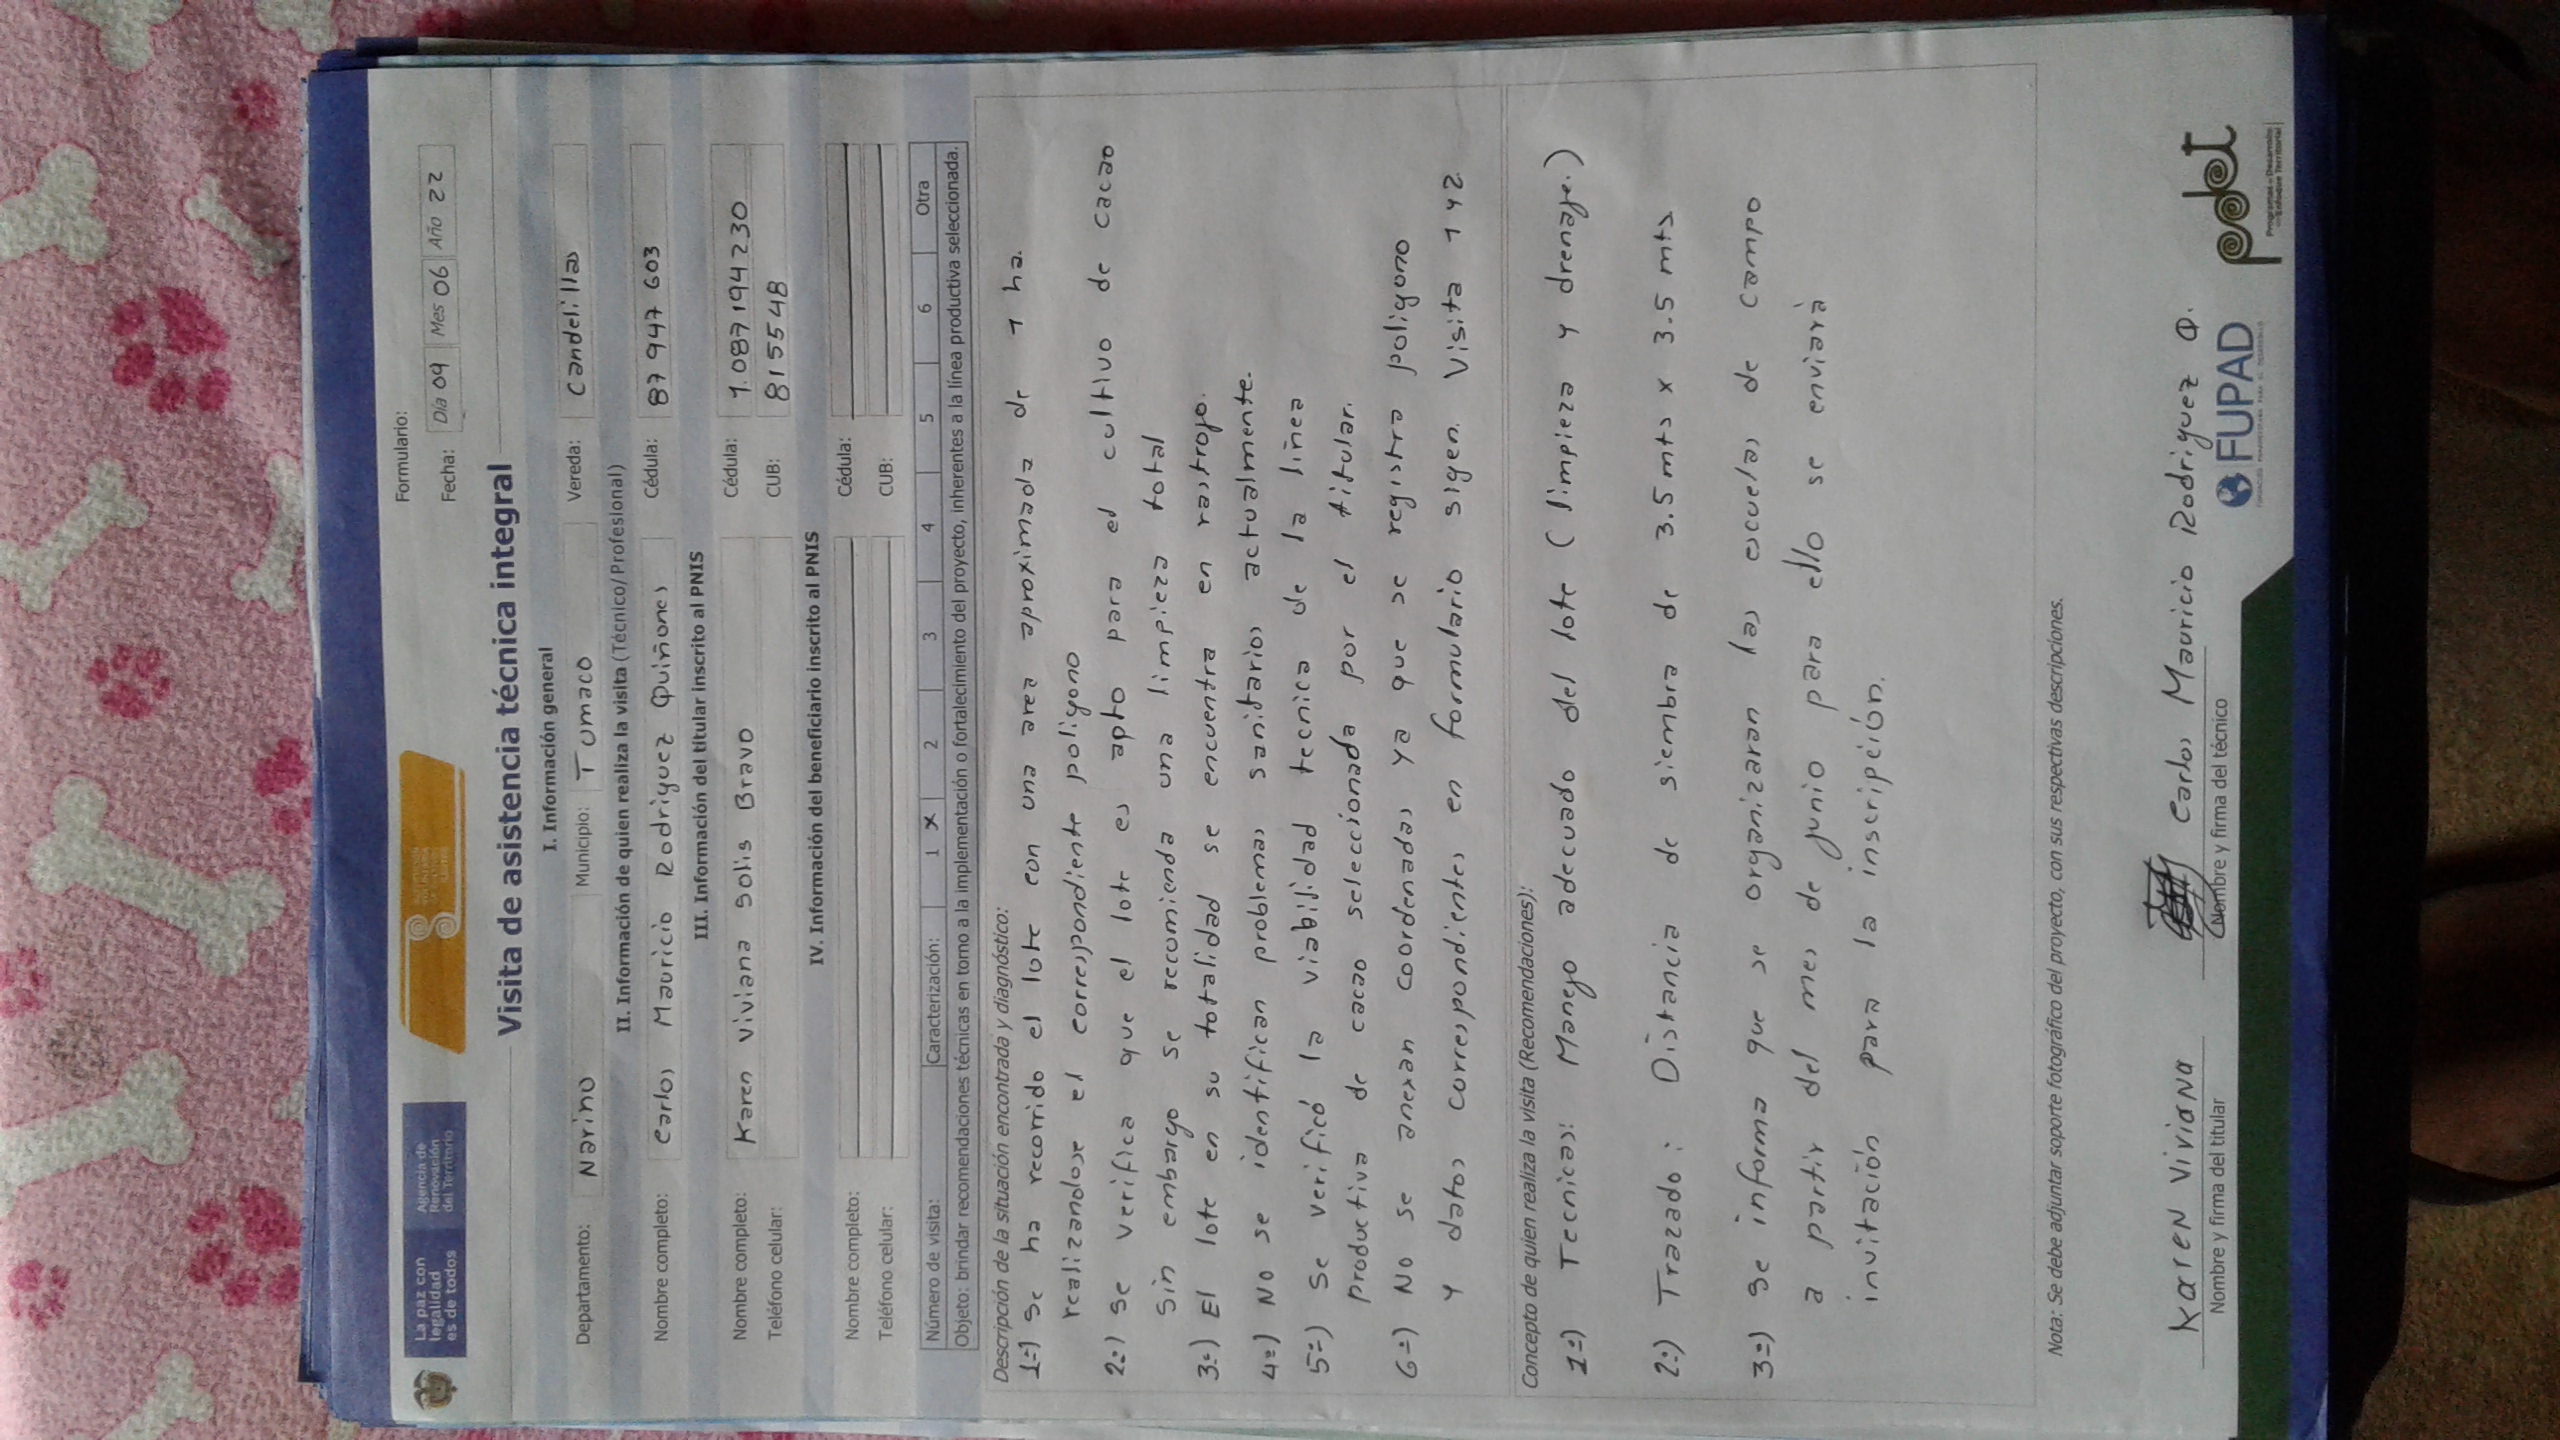 La paz con
legalidad
es de todos
Agencia de
Renovación
del Territorio
Formulario:
Fecha: Día 09 Mes 06 Año 22
Visita de asistencia técnica integral
I. Información general
Departamento: Narino Municipio: Tumaco Vereda: Candelillas
II. Información de quien realiza la visita (Técnico/Profesional)
Nombre completo: Carlos Mauricio Rodriguez Quiñones Cédula: 87 947 603
III. Información del titular inscrito al PNIS
Nombre completo: Karen Viviana Solis Bravo Cédula: 1.087194230
Teléfono celular: CUB: 8155548
IV. Información del beneficiario inscrito al PNIS
Nombre completo: Cédula:
Teléfono celular: CUB:
Número de visita: Caracterización: 1 x 2 3 4 5 6 Otra
Objeto: brindar recomendaciones técnicas en torno a la implementación o fortalecimiento del proyecto, inherentes a la línea productiva seleccionada.
Descripción de la situación encontrada y diagnóstico:
1=) Se ha recorrido el lote con una area aproximada de 1 ha.
realizandose el correspondiente poligono
2=) Se verifica que el lote es apto para el cultivo de cacao
Sin embargo se recomienda una limpieza total
3=) El lote en su totalidad se encuentra en rastrojo.
4=) No se identifican problemas sanitarios actualmente.
5=) Se verificó la viabilidad tecnica de la linea
productiva de cacao seleccionada por el titular.
6=) No se anexan coordenadas ya que se registra poligono
y datos correspondientes en formulario sigen. Visita 1 y 2.
Concepto de quien realiza la visita (Recomendaciones):
1=) Tecnicas: Manejo adecuado del lote (limpieza y drenaje.)
2=) Trazado: Distancia de siembra de 3.5 mts x 3.5 mts
3=) Se informa que se organizaran las escuelas de campo
a partir del mes de junio para ello se enviará
invitación para la inscripción.
Nota: Se debe adjuntar soporte fotográfico del proyecto, con sus respectivas descripciones.
Karen Viviana Carlos Mauricio Rodriguez Q.
Nombre y firma del titular Nombre y firma del técnico
FUPAD
pdet
Programas de Desarrollo
con Enfoque Territorial